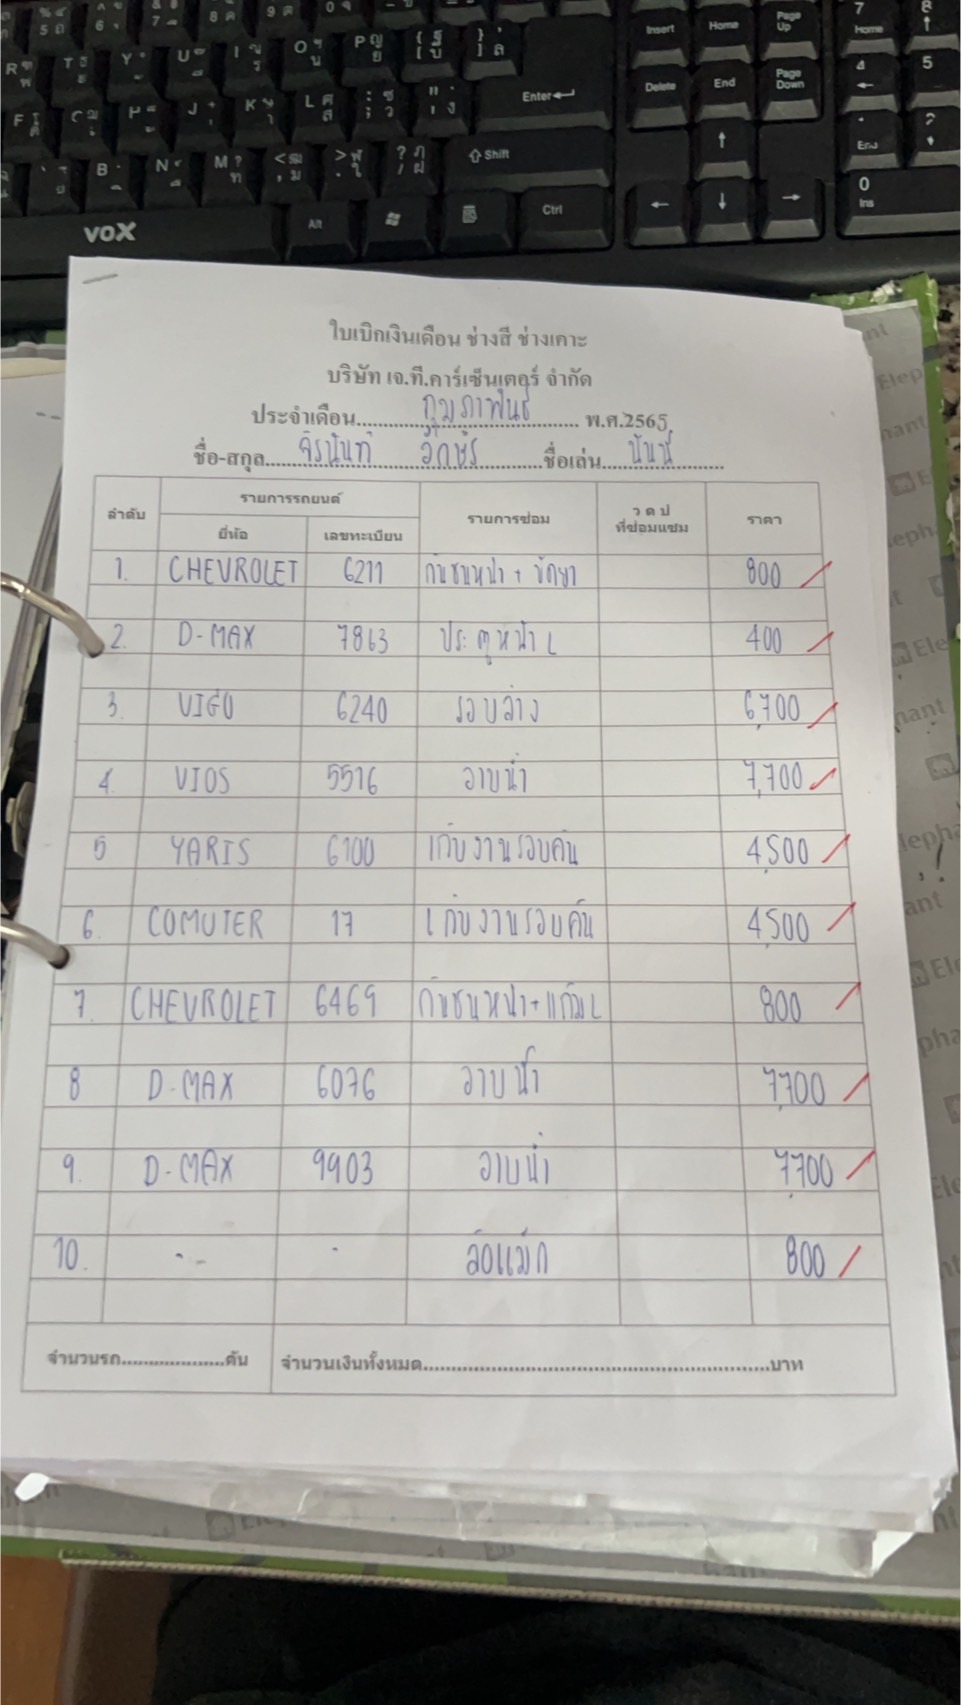 Insert Home Page Up 7 Home 8
Delete End Page Down 4 5
Enter
Shift
End
Alt Ctrl 0 Ins
VOX
ใบเบิกเงินเดือน ช่างสี ช่างเคาะ
บริษัท เจ.ที.คาร์เซ็นเตอร์ จำกัด
ประจำเดือน กุมภาพันธ์ พ.ศ.2565
ชื่อ-สกุล จิรนันท์ ชื่อเล่น
ลำดับ รายการรถยนต์ รายการซ่อม ว ด ป ที่ซ่อมแซม ราคา
ยี่ห้อ เลขทะเบียน
1. CHEVROLET 6211 กันชนหน้า + 800
2. D-MAX 7863 ประตูหน้า L 400
3. VIGO 6240 รอบล่าง 6,700
4. VIOS 5516 อาบน้ำ 7,700
5 YARIS 6100 เก็บงานรอบคัน 4,500
6. COMUTER 17 เก็บงานรอบคัน 4,500
7. CHEVROLET 6469 กันชนหน้า+แก้ม L 800
8 D-MAX 6076 อาบน้ำ 7,700
9. D-MAX 9903 อาบน้ำ 7,700
10. - - ล้อแม็ก 800
จำนวนรถ....................คัน จำนวนเงินทั้งหมด....................บาท